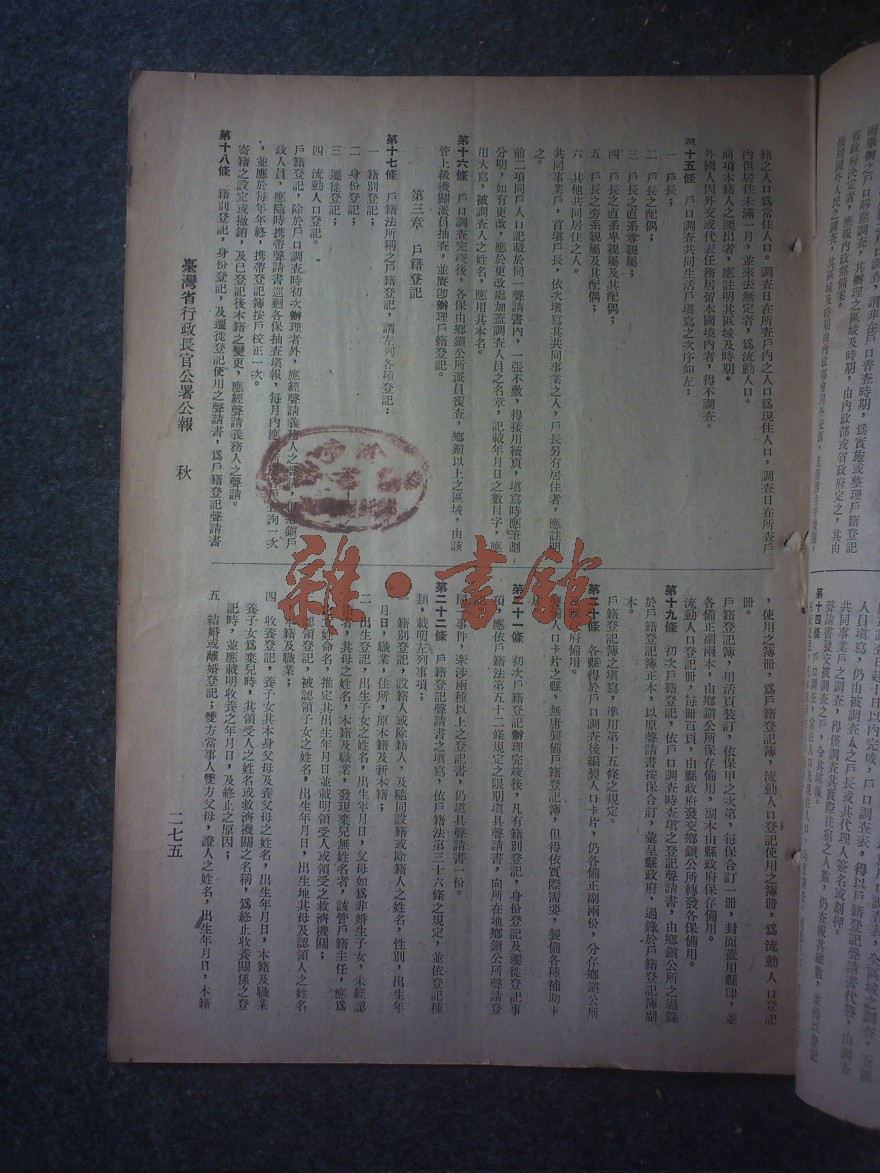 籍之人口爲常住人口。調查日在所查戶內之人口爲現住人口，調查日在所查戶
內但居住未滿一月，並來去無定者，爲流動人口。
前項本籍人之遷出者，應註明其區域及時期。
外國人因外交或代表任務居留本國境內者，得不調查。
第十五條　戶口調查共同生活戶填寫之次序如左：
一　戶長；
二　戶長之配偶；
三　戶長之直系尊親屬；
四　戶長之直系卑親屬及其配偶；
五　戶長之旁系親屬及其配偶；
六　其他共同居住之人。
共同事業戶，首填戶長，依次填寫其共同事業之人，戶長另有居住者，應註明
之。
前二項同戶人口記載於同一聲請書內，一張不敷，得接用續頁，填寫時應筆劃
分明，如有更改，應於更改處加蓋調查人員之名章，記載年月日之數目字，應
用大寫，被調查人之姓名，應用其本名。
第十六條　戶口調查完竣後，各保由鄉鎭公所派員覆查，鄉鎭以上之區域，由該
管上級機關派員抽查，並應卽辦理戶籍登記。
第三章　戶籍登記
第十七條　戶籍法所稱之戶籍登記，謂左列各種登記：
一　籍別登記；
二　身份登記；
三　遷徙登記；
四　流動人口登記。
戶籍登記，除於戶口調查時初次辦理者外，應經聲請義務人之聲請，但鄉鎭戶
政人員，應隨時携帶聲請書巡迴各保抽查填報，每月內應 戶 詢一次
，並應於每年年終，携帶登記簿按戶校正一次。
寄籍之設定或撤銷，及已登記後本籍之變更，應經聲請義務人之聲請。
第十八條　籍別登記，身份登記，及遷徙登記使用之聲請書，爲戶籍登記聲請書
，使用之簿冊，爲戶籍登記簿，流動人口登記使用之簿冊，爲流動人口登記
冊。
戶籍登記簿，用活頁裝訂，依保甲之次第，每保合訂一冊，封面蓋用縣印，並
各備正副兩本，由鄉鎭公所保存備用，副本由縣政府保存備用。
流動人口登記冊，每冊百頁，由縣政府發交鄉鎭公所轉發各保備用。
第十九條　初次戶籍登記，依戶口調查時查填之登記聲請書，由鄉鎭公所之過錄
於戶籍登記簿正本，以原聲請書按保合訂，彙呈縣政府，過錄於戶籍登記簿副
本。
戶籍登記簿之填寫，準用第十五條之規定。
第二十條　各縣得於戶口調查後編製人口卡片，仍各備正副兩份，分存鄉鎭公所
及縣政府備用。
人口卡片之縣，無庸製備戶籍登記簿，但得依實際需要，製備各種輔助卡
第二十一條　初次戶籍登記辦理完竣後，凡有籍別登記，身份登記及遷徙登記事
項，應依戶籍法第五十二條規定之限期填具聲請書，向所在地鄉鎭公所聲請登
同一事件，牽涉兩種以上之登記書，仍填具聲請書一份。
第二十二條　戶籍登記聲請書之填寫，依戶籍法第三十六條之規定，並依登記種
類，載明左列事項；
一　籍別登記，設籍人或除籍人，及隨同設籍或除籍人之姓名，性別，出生年
月日，職業，住所，原本籍及新本籍；
二　出生登記，出生子女之姓名，出生年月日，父母如爲非婚生子女，未經認
者，其母之姓名，本籍及職業，發現棄兒無姓名者，該管戶籍主任，應爲
之姓命名，推定其出生年月日並載明領受人或領受之救濟機關；
認領登記，被認領子女之姓名，出生年月日，出生地其母及認領人之姓名
本籍及職業；
四　收養登記，養子女其本身父母及養父母之姓名，出生年月日，本籍及職業
養子女爲棄兒時，其領受人之姓名或救濟機關之名稱，爲終止收養關係之登
記時，並應載明收養之年月日，及終止之原因；
五　結婚或離婚登記；雙方當事人雙方父母，證人之姓名，出生年月日，本籍
臺灣省行政長官公署公報　秋
二七五
雜・書館